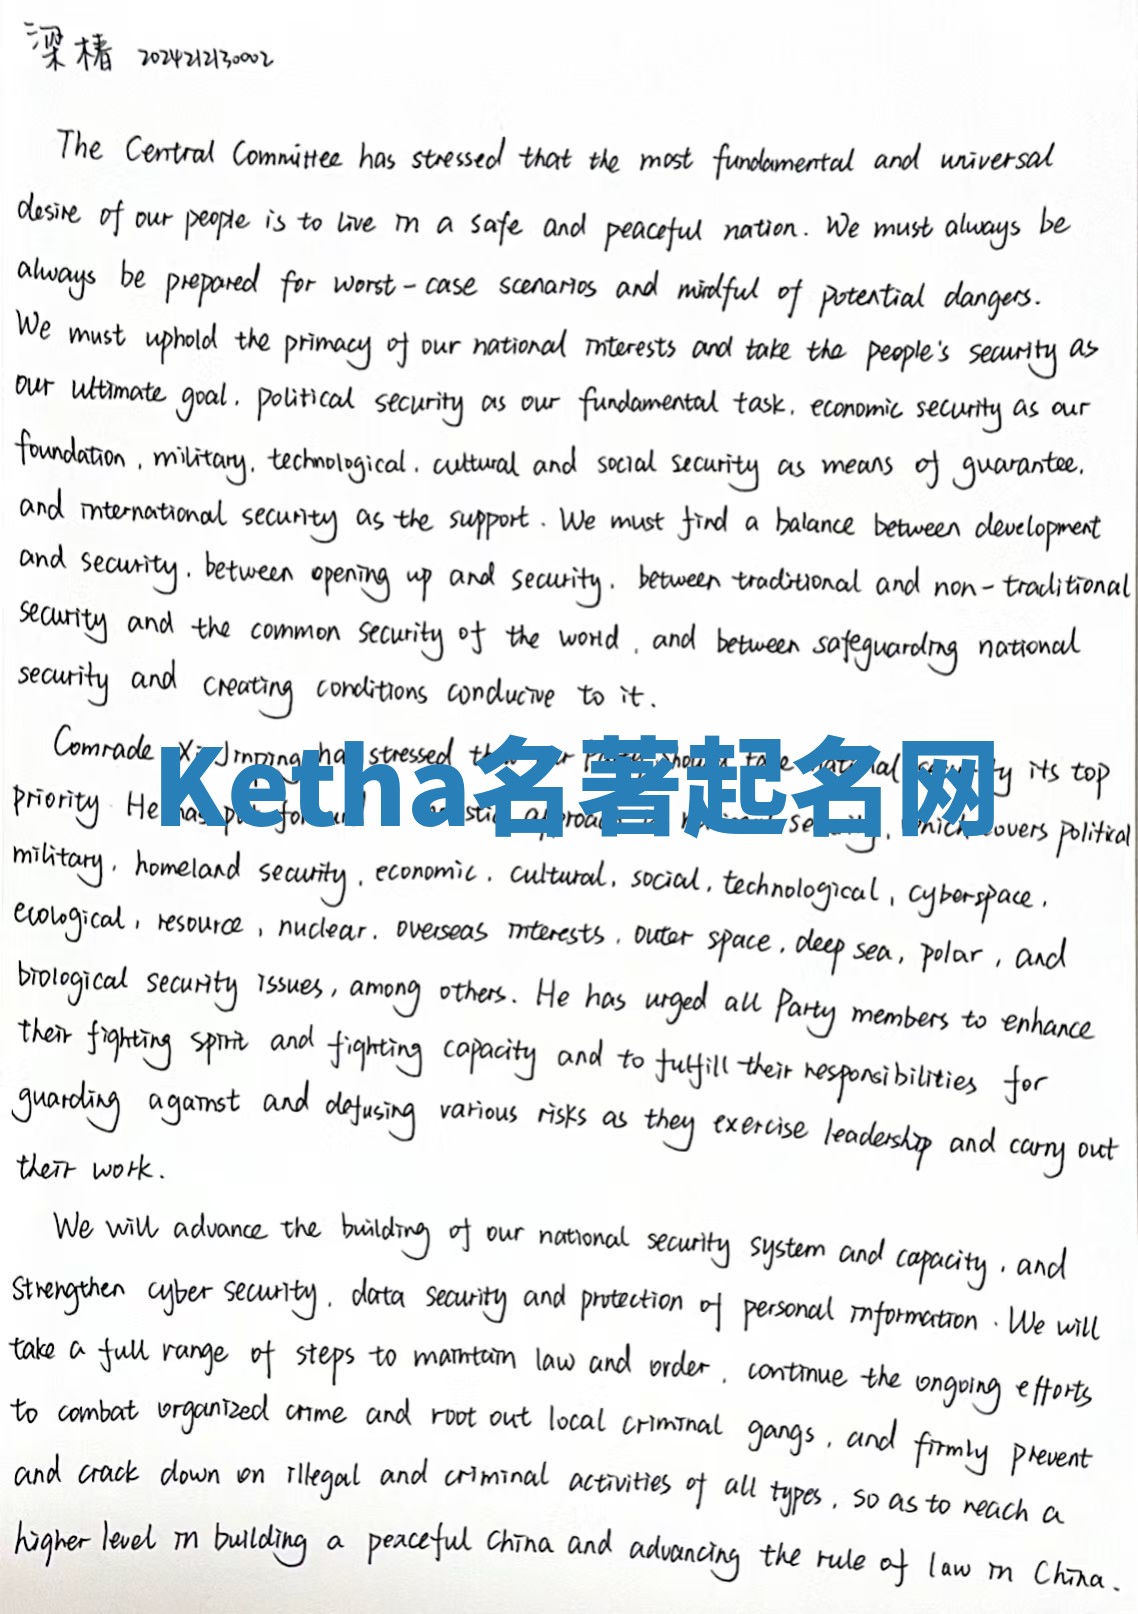 梁椿 2024212130002
The Central Committee has stressed that the most fundamental and universal
desire of our people is to live in a safe and peaceful nation. We must always be
always be prepared for worst-case scenarios and mindful of potential dangers.
We must uphold the primacy of our national interests and take the people's security as
our ultimate goal, political security as our fundamental task, economic security as our
foundation, military, technological, cultural and social security as means of guarantee,
and international security as the support. We must find a balance between development
and security, between opening up and security, between traditional and non-traditional
security and the common security of the world, and between safeguarding national
security and creating conditions conducive to it.
Comrade Xi Jinping has stressed its top
Ketha名著起名网
priority. He has which covers political
military, homeland security, economic, cultural, social, technological, cyberspace,
ecological, resource, nuclear, overseas interests, outer space, deep sea, polar, and
biological security issues, among others. He has urged all Party members to enhance
their fighting spirit and fighting capacity and to fulfill their responsibilities for
guarding against and defusing various risks as they exercise leadership and carry out
their work.
We will advance the building of our national security system and capacity, and
strengthen cyber security, data security and protection of personal information. We will
take a full range of steps to maintain law and order, continue the ongoing efforts
to combat organized crime and root out local criminal gangs, and firmly prevent
and crack down on illegal and criminal activities of all types, so as to reach a
higher level in building a peaceful China and advancing the rule of law in China.